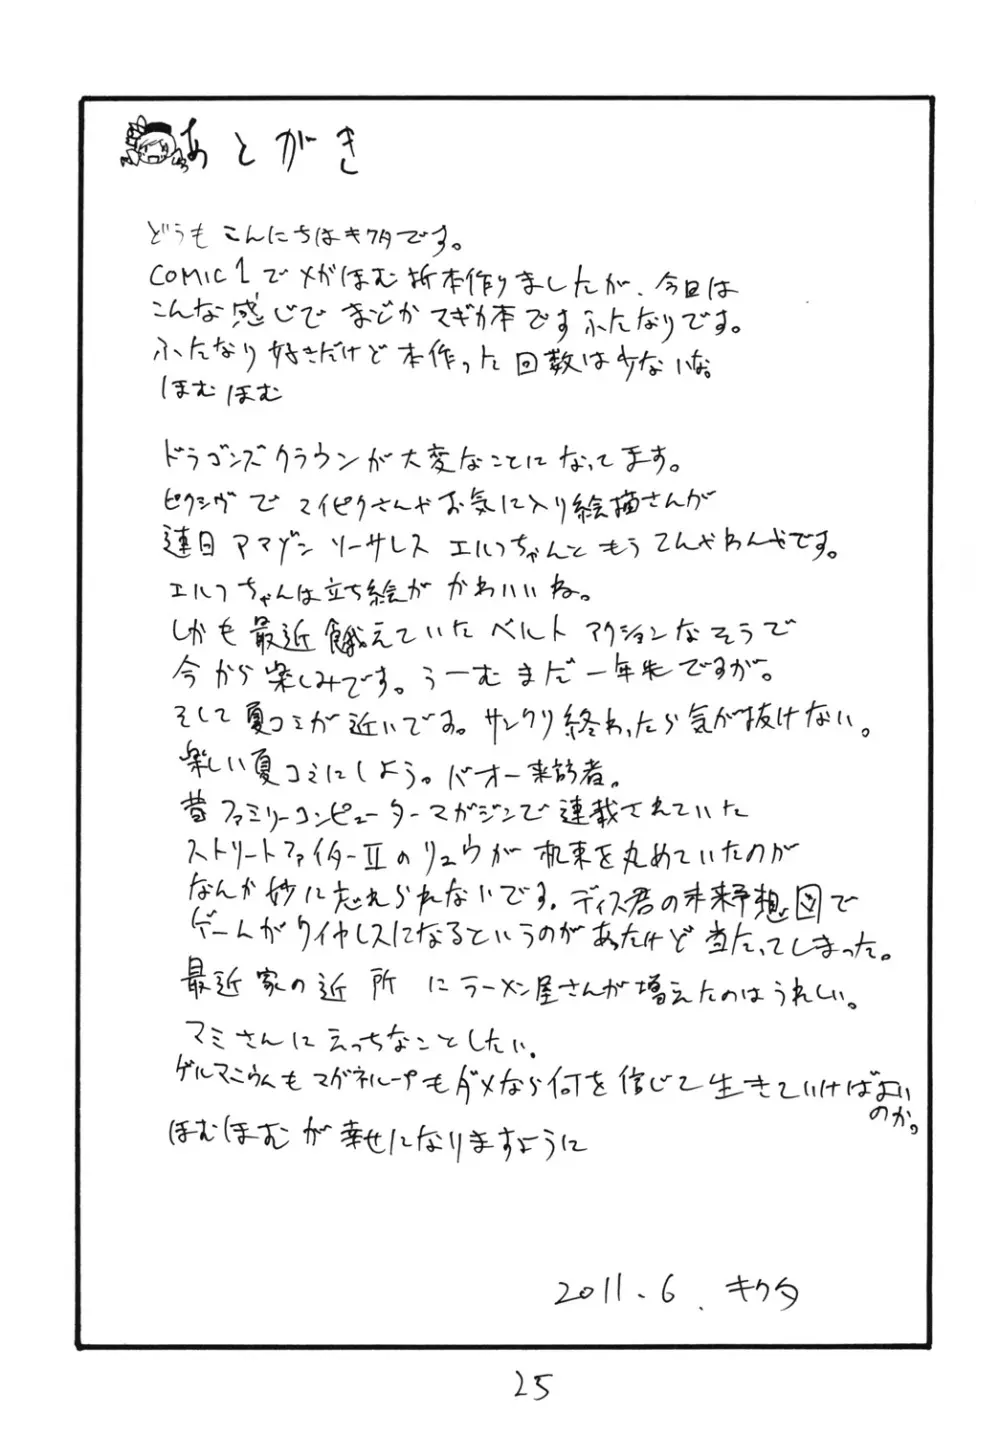 あとがき
どうもこんにちはキクタです。
COMIC1でメガほむ折本作りましたが、今日は
こんな感じでまどかマギカ本ですふたなりです。
ふたなり好きだけど本作った回数は少ないな。
ほむほむ
ドラゴンズクラウンが大変なことになってます。
ピクシヴでマイピクさんやお気に入り絵描さんが
連日アマゾンソーサレスエルフちゃんともうてんやわんやです。
エルフちゃんは立ち絵がかわいいね。
しかも最近餓えていたベルトアクションなそうで
今から楽しみです。うーむまだ一年先ですが。
そして夏コミが近いです。サンクリ終わったら気が抜けない。
楽しい夏コミにしよう。バオー来訪者。
昔ファミリーコンピューターマガジンで連載されていた
ストリートファイターⅡのリュウが札束を丸めていたのが
なんか妙に忘れられないです。ディス君の未来予想図で
ゲームがタイヤレスになるというのがあったけど当たってしまった。
最近家の近所にラーメン屋さんが増えたのはうれしい。
マミさんにえっちなことしたい。
ゲルマニウムもマグネループもダメなら何を信じて生きていけばよい
のか。
ほむほむが幸せになりますように
2011.6.キクタ
25